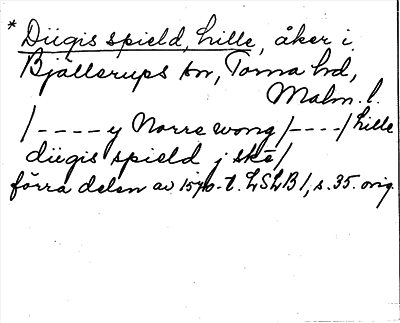 * Dügis spield, hille, åker i
Bjällerups sn, Torna hd,
Malm. l.
/----y Norre wong/----/hille
dügis spield j skē/
förra delen av 1570-t. LSLB1, s. 35. orig.